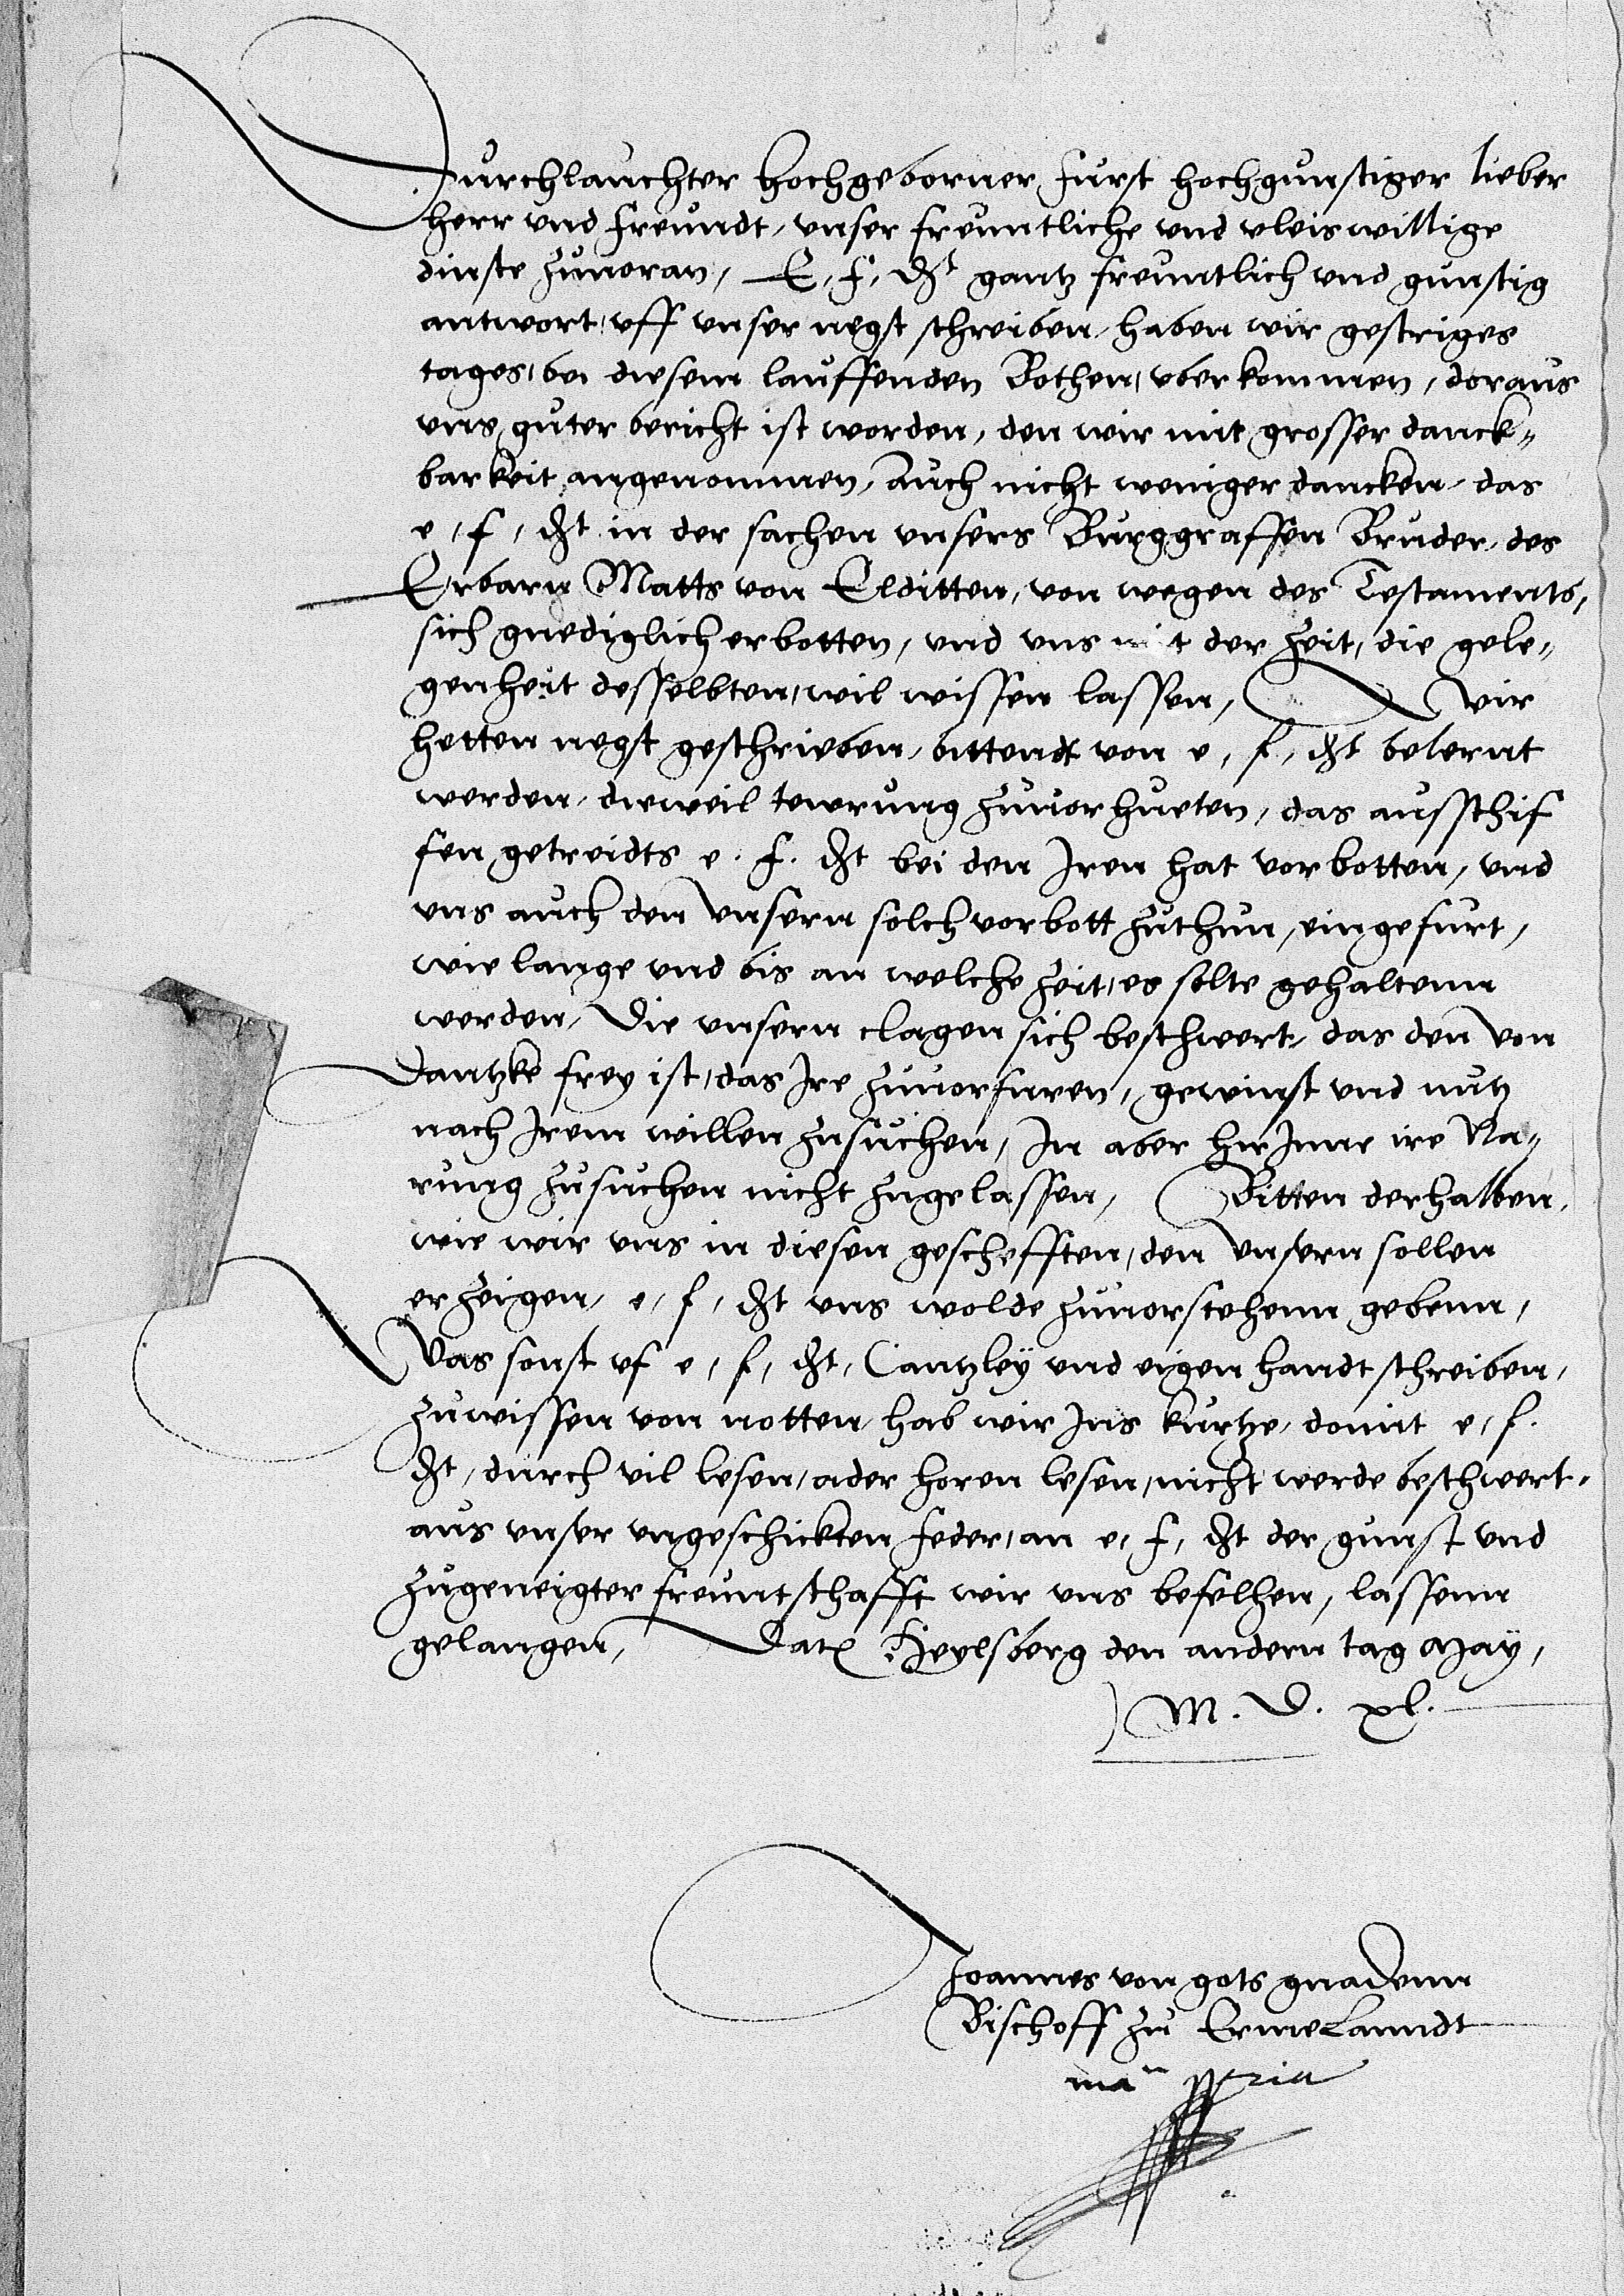 Durchlauchter Hochgeborner furst hochgunstiger lieber
herr und freundt, unser freuntliche und vleiswillige
dinste zuuoran, E, f, dt gantz freuntlich und gunstig
antwort, uff unser negst schreiben, haben wir gestriges
tages, bei diesem lauffenden Bothen, uberkommen, doraus
uns guter bericht ist worden, den wir mit grosser danck„
barkeit angenommen, Auch nicht weniger dancken, das
e, f, dt in der sachen unsers Burggraffen Bruder, des
Erbarn Matts von Elditten, von wegen des Testaments,
sich gnediglich erbotten, und uns mit der zeit, die gele„
genheit desselbten, wil wissen lassen, Wir
hetten negst geschrieben, bittendt von e, f, dt belernt
werden, dieweil tewrung zuuorhueten, das ausschif
fen getreidts e. f. dt bei den Iren hat vorbotten, und
uns auch den unsern solch vorbott zuthun, eingefurt,
wie lange und bis an welche zeit, es solte gehaltenn
werden, Die unsern clagen sich beschwert, das den von
Dantzke frey ist, das Ire zuuorfuren, gewinst und nutz
nach Irem willen zusuchen, In aber hirInne ire Na„
rung zusuchen nicht zugelassen, Bitten derhalben,
wie wir uns in diesen geschefften, den unsern sollen
erzeigen, e, f, dt uns wolde zuuorstehenn gebenn,
Was sonst uf e, f, dt, Cantzley und eigen handt schreiben,
zuwissen von notten, hab wir Ins kurtze, domit e, f.
dt, durch vil lesen, ader horen lesen, nicht werde beschwert,
aus unser ungeschickten feder, an e, f, dt der gunst und
zugeneigter freuntschafft wir uns befelhen, lassenn
gelangen, Dat Heylsberg den andern tag May,
M. D. xl.
Joannes von gots gnadenn
Bischoff zu Ermelanndt
man ppria